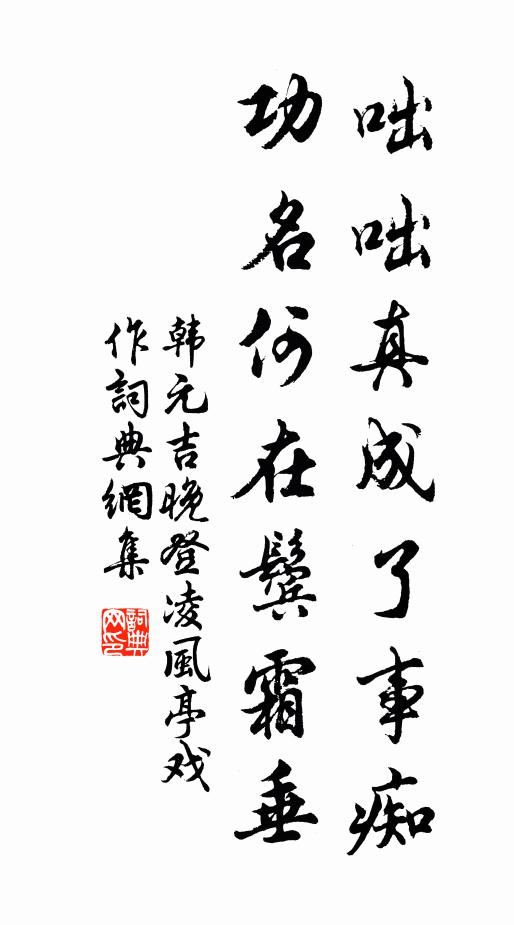 咄咄真成了事痴
功名何在鬓霜垂
韩元吉晚登凌風亭戏
作詞典網集
詞典
网印